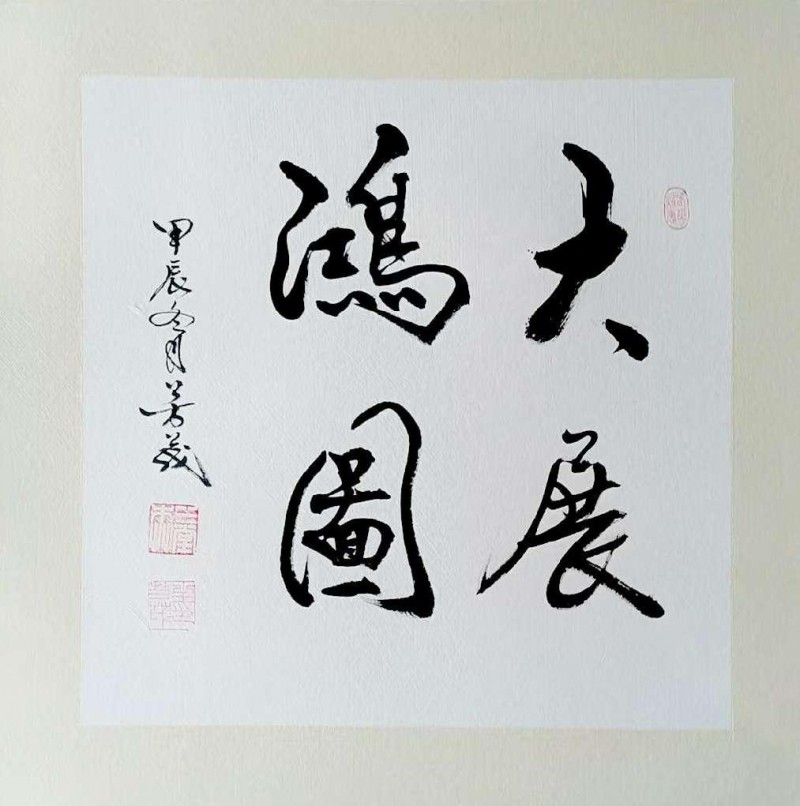 大展
鴻圖
甲辰冬月芳茂